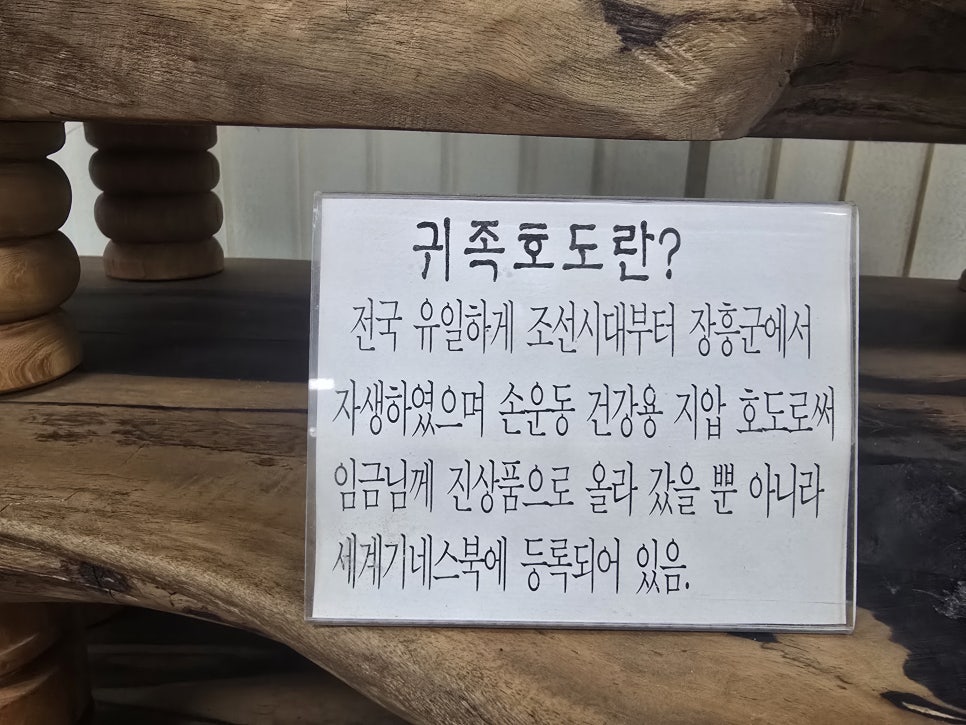 귀족호도란?
전국 유일하게 조선시대부터 장흥군에서
자생하였으며 손운동 건강용 지압 호도로써
임금님께 진상품으로 올라 갔을 뿐 아니라
세계기네스북에 등록되어 있음.